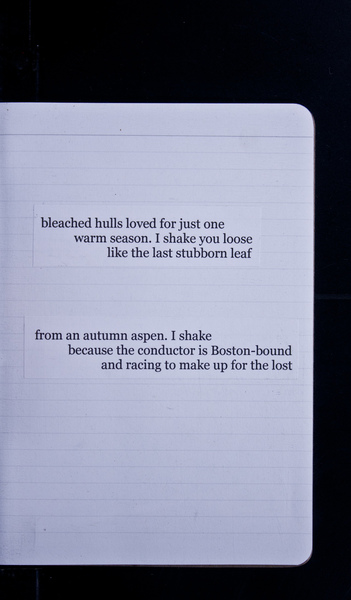 bleached hulls loved for just one
warm season. I shake you loose
like the last stubborn leaf
from an autumn aspen. I shake
because the conductor is Boston-bound
and racing to make up for the lost